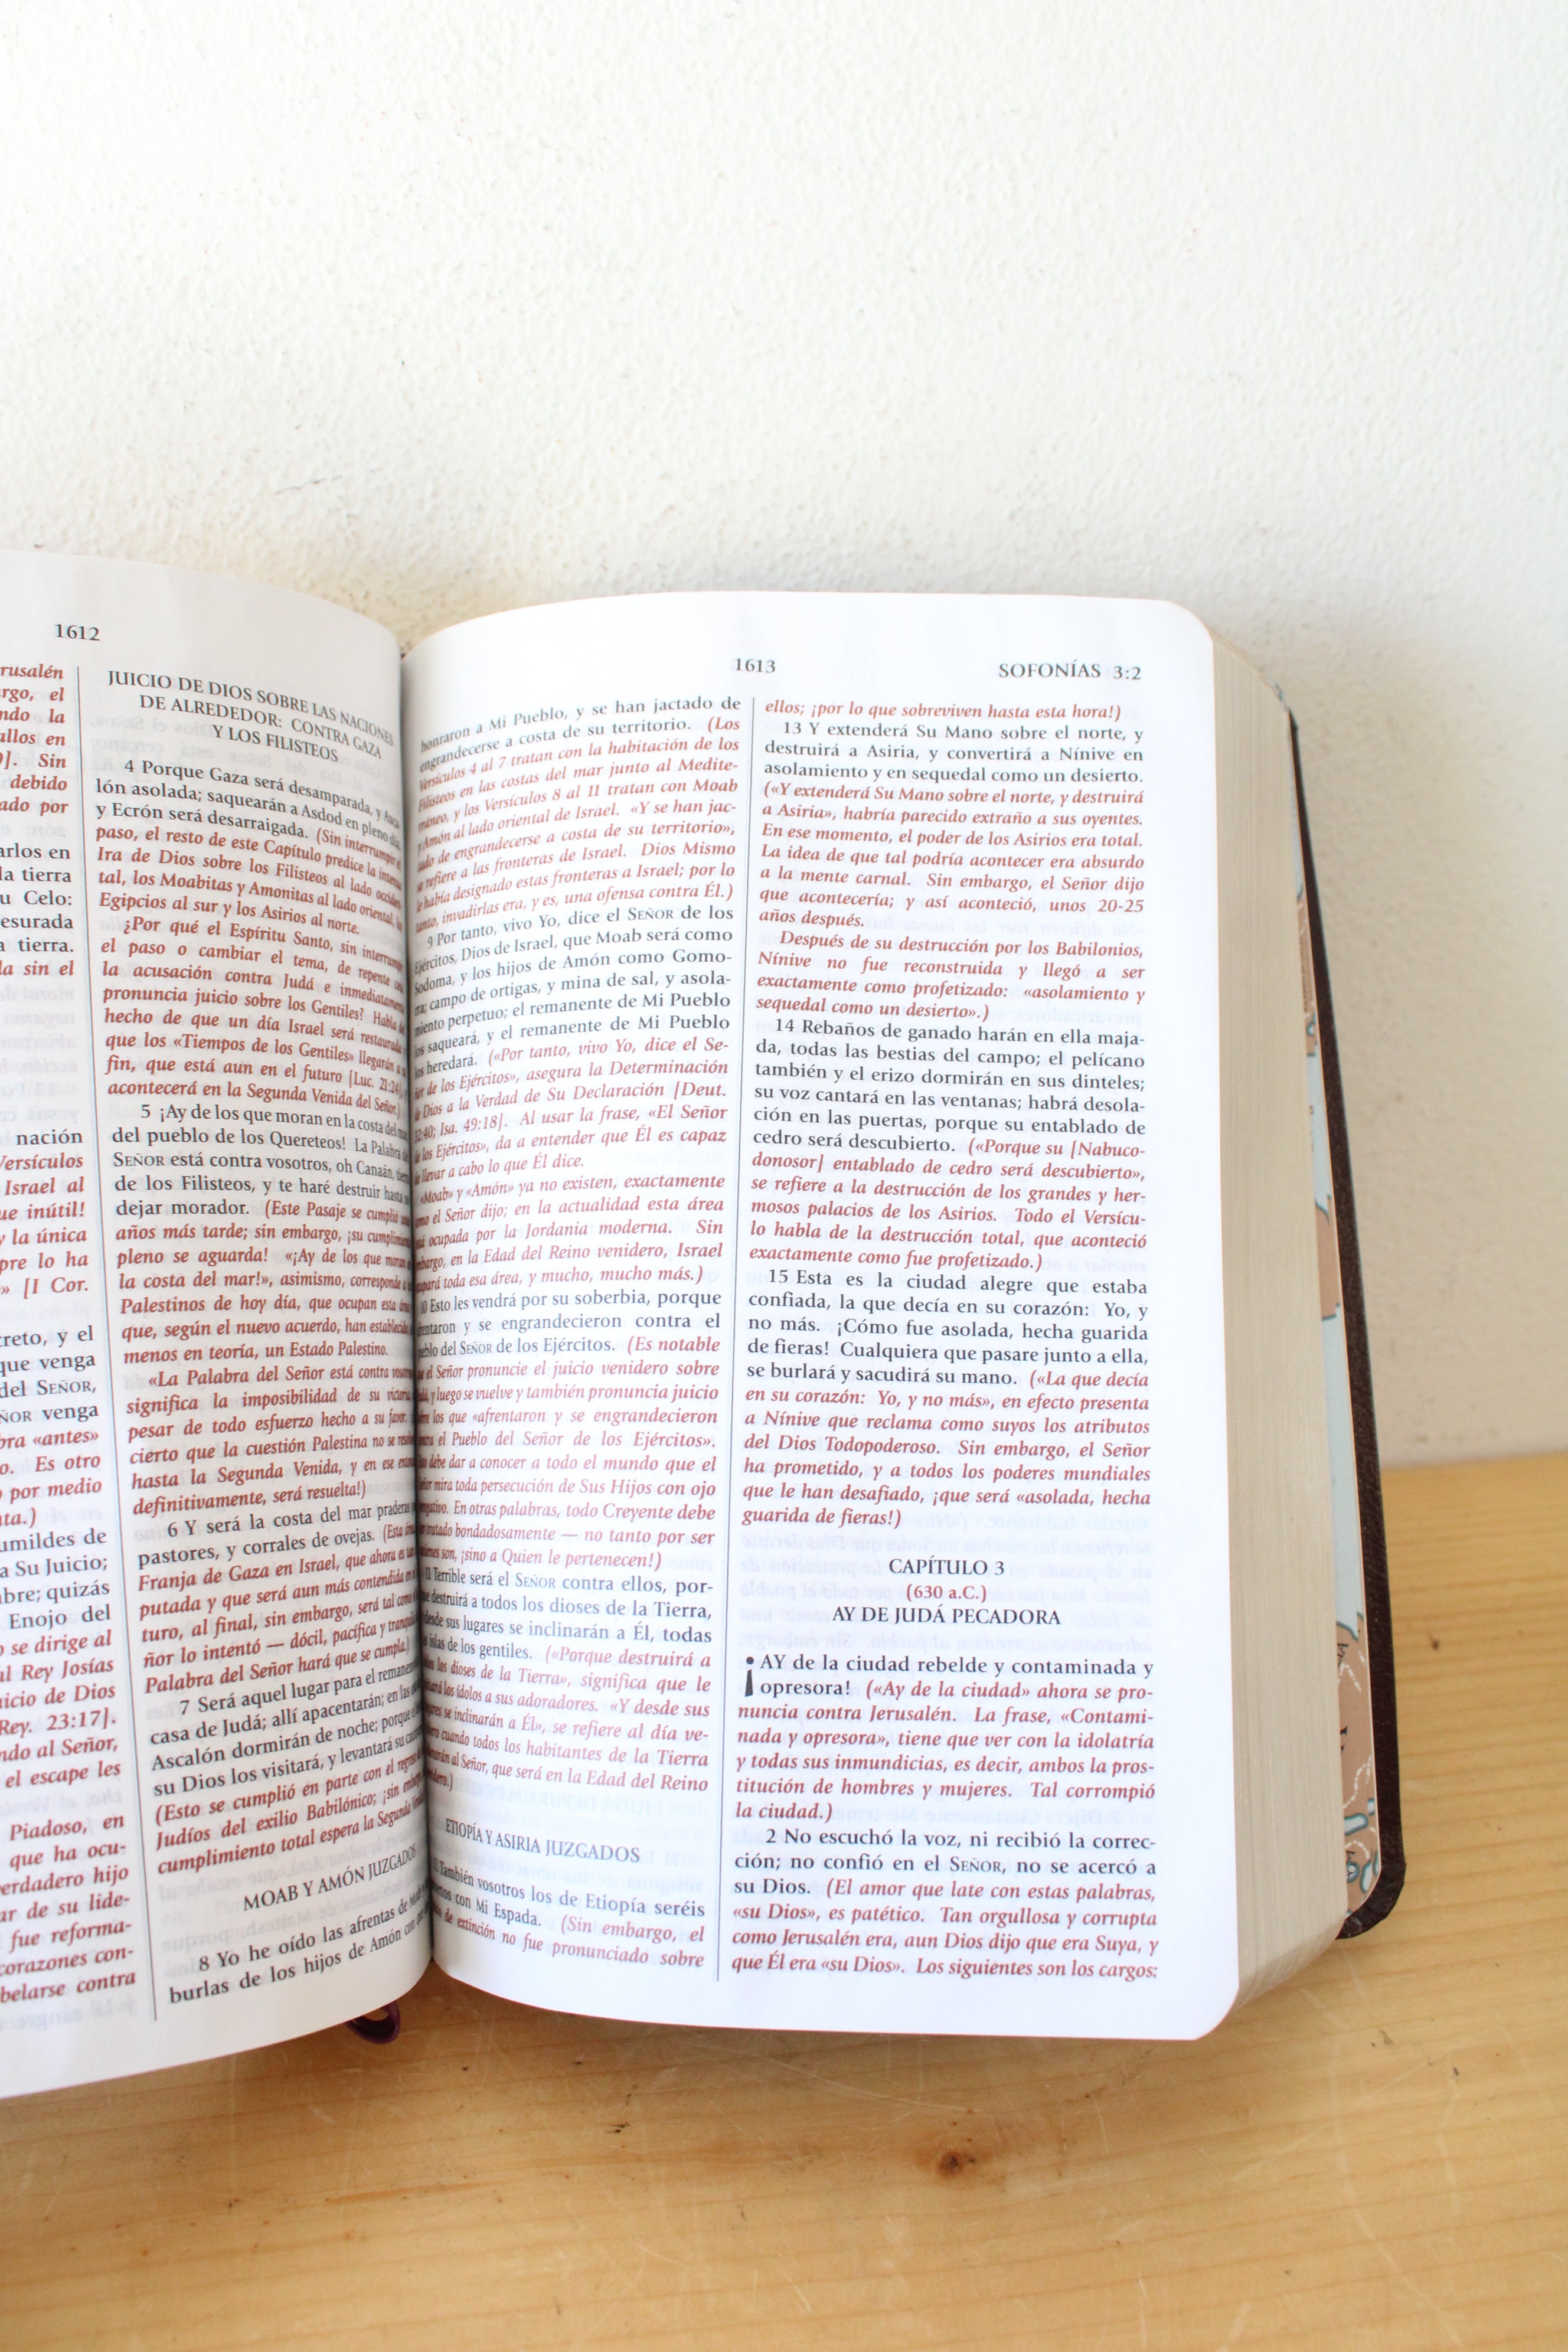 1612
rusalén
rgo, el
ndo la
allos en
Sin
debido
ado por
arlos en
la tierra
u Celo:
esurada
a tierra.
la sin el
nación
Versículos
Israel al
ue inútil!
y la única
pre lo ha
» [I Cor.
creto, y el
que venga
del SEÑOR,
ÑOR venga
bra «antes»
o. Es otro
por medio
ta.)
umildes de
a Su Juicio;
bre; quizás
Enojo del
o se dirige al
al Rey Josías
uicio de Dios
Rey. 23:17].
ndo al Señor,
el escape les
Piadoso, en
que ha ocu-
verdadero hijo
ar de su lide-
fue reforma-
corazones con-
belarse contra
JUICIO DE DIOS SOBRE LAS NACIONES
DE ALREDEDOR: CONTRA GAZA
Y LOS FILISTEOS
4 Porque Gaza será desamparada, y Asca-
lón asolada; saquearán a Asdod en pleno día,
y Ecrón será desarraigada. (Sin interrumpir el
paso, el resto de este Capítulo predice la
Ira de Dios sobre los Filisteos al lado occiden-
tal, los Moabitas y Amonitas al lado oriental, los
Egipcios al sur y los Asirios al norte.
¿Por qué el Espíritu Santo, sin interrumpir
el paso o cambiar el tema, de repente
la acusación contra Judá e inmediatamente
pronuncia juicio sobre los Gentiles? Habla del
hecho de que un día Israel será restaurada
que los «Tiempos de los Gentiles» llegarán a su
fin, que está aun en el futuro [Luc. 21:24],
acontecerá en la Segunda Venida del Señor.)
5 ¡Ay de los que moran en la costa del mar,
del pueblo de los Quereteos! La Palabra del
SEÑOR está contra vosotros, oh Canaán, tierra
de los Filisteos, y te haré destruir hasta no
dejar morador. (Este Pasaje se cumplió unos
años más tarde; sin embargo, ¡su cumplimiento
pleno se aguarda! «¡Ay de los que moran en
la costa del mar!», asimismo, corresponde a los
Palestinos de hoy día, que ocupan esta área
que, según el nuevo acuerdo, han establecido,
menos en teoría, un Estado Palestino.
«La Palabra del Señor está contra vosotros»
significa la imposibilidad de su victoria,
pesar de todo esfuerzo hecho a su favor.
cierto que la cuestión Palestina no se
hasta la Segunda Venida, y en ese
definitivamente, será resuelta!)
6 Y será la costa del mar praderas
pastores, y corrales de ovejas. (Esta
Franja de Gaza en Israel, que ahora es
putada y que será aun más contendida en
turo, al final, sin embargo, será tal como
ñor lo intentó — dócil, pacífica y tranquila
Palabra del Señor hará que se cumpla.)
7 Será aquel lugar para el remanente
casa de Judá; allí apacentarán; en las
Ascalón dormirán de noche; porque
su Dios los visitará, y levantará su
(Esto se cumplió en parte con el
Judíos del exilio Babilónico; ¡sin embargo,
cumplimiento total espera la Segunda
MOAB Y AMÓN JUZGADOS
8 Yo he oído las afrentas de
burlas de los hijos de Amón con
1613
SOFONÍAS 3:2
honraron a Mi Pueblo, y se han jactado de
engrandecerse a costa de su territorio. (Los
Versículos 4 al 7 tratan con la habitación de los
Filisteos en las costas del mar junto al Medite-
rráneo, y los Versículos 8 al 11 tratan con Moab
y Amón al lado oriental de Israel. «Y se han jac-
tado de engrandecerse a costa de su territorio»,
se refiere a las fronteras de Israel. Dios Mismo
había designado estas fronteras a Israel; por lo
tanto, invadirlas era, y es, una ofensa contra Él.)
9 Por tanto, vivo Yo, dice el SEÑOR de los
Ejércitos, Dios de Israel, que Moab será como
Sodoma, y los hijos de Amón como Gomo-
rra; campo de ortigas, y mina de sal, y asola-
miento perpetuo; el remanente de Mi Pueblo
los saqueará, y el remanente de Mi Pueblo
los heredará. («Por tanto, vivo Yo, dice el Se-
ñor de los Ejércitos», asegura la Determinación
de Dios a la Verdad de Su Declaración [Deut.
32:40; Isa. 49:18]. Al usar la frase, «El Señor
de los Ejércitos», da a entender que Él es capaz
de llevar a cabo lo que Él dice.
«Moab» y «Amón» ya no existen, exactamente
como el Señor dijo; en la actualidad esta área
está ocupada por la Jordania moderna. Sin
embargo, en la Edad del Reino venidero, Israel
ocupará toda esa área, y mucho, mucho más.)
10 Esto les vendrá por su soberbia, porque
afrentaron y se engrandecieron contra el
pueblo del SEÑOR de los Ejércitos. (Es notable
que el Señor pronuncie el juicio venidero sobre
Judá, y luego se vuelve y también pronuncia juicio
sobre los que «afrentaron y se engrandecieron
contra el Pueblo del Señor de los Ejércitos».
debe dar a conocer a todo el mundo que el
Señor mira toda persecución de Sus Hijos con ojo
negativo. En otras palabras, todo Creyente debe
ser tratado bondadosamente — no tanto por ser
quienes son, ¡sino a Quien le pertenecen!)
11 Terrible será el SEÑOR contra ellos, por-
que destruirá a todos los dioses de la Tierra,
desde sus lugares se inclinarán a Él, todas
islas de los gentiles. («Porque destruirá a
todos los dioses de la Tierra», significa que le
los ídolos a sus adoradores. «Y desde sus
lugares se inclinarán a Él», se refiere al día ve-
nidero cuando todos los habitantes de la Tierra
al Señor, que será en la Edad del Reino
venidero.)
ETIOPÍA Y ASIRIA JUZGADOS
12 También vosotros los de Etiopía seréis
muertos con Mi Espada. (Sin embargo, el
de extinción no fue pronunciado sobre
ellos; ¡por lo que sobreviven hasta esta hora!)
13 Y extenderá Su Mano sobre el norte, y
destruirá a Asiria, y convertirá a Nínive en
asolamiento y en sequedal como un desierto.
(«Y extenderá Su Mano sobre el norte, y destruirá
a Asiria», habría parecido extraño a sus oyentes.
En ese momento, el poder de los Asirios era total.
La idea de que tal podría acontecer era absurdo
a la mente carnal. Sin embargo, el Señor dijo
que acontecería; y así aconteció, unos 20-25
años después.
Después de su destrucción por los Babilonios,
Nínive no fue reconstruida y llegó a ser
exactamente como profetizado: «asolamiento y
sequedal como un desierto».)
14 Rebaños de ganado harán en ella maja-
da, todas las bestias del campo; el pelícano
también y el erizo dormirán en sus dinteles;
su voz cantará en las ventanas; habrá desola-
ción en las puertas, porque su entablado de
cedro será descubierto. («Porque su [Nabuco-
donosor] entablado de cedro será descubierto»,
se refiere a la destrucción de los grandes y her-
mosos palacios de los Asirios. Todo el Versícu-
lo habla de la destrucción total, que aconteció
exactamente como fue profetizado.)
15 Esta es la ciudad alegre que estaba
confiada, la que decía en su corazón: Yo, y
no más. ¡Cómo fue asolada, hecha guarida
de fieras! Cualquiera que pasare junto a ella,
se burlará y sacudirá su mano. («La que decía
en su corazón: Yo, y no más», en efecto presenta
a Nínive que reclama como suyos los atributos
del Dios Todopoderoso. Sin embargo, el Señor
ha prometido, y a todos los poderes mundiales
que le han desafiado, ¡que será «asolada, hecha
guarida de fieras!)
CAPÍTULO 3
(630 a.C.)
AY DE JUDÁ PECADORA
¡AY de la ciudad rebelde y contaminada y
opresora! («Ay de la ciudad» ahora se pro-
nuncia contra Jerusalén. La frase, «Contami-
nada y opresora», tiene que ver con la idolatría
y todas sus inmundicias, es decir, ambos la pros-
titución de hombres y mujeres. Tal corrompió
la ciudad.)
2 No escuchó la voz, ni recibió la correc-
ción; no confió en el SEÑOR, no se acercó a
su Dios. (El amor que late con estas palabras,
«su Dios», es patético. Tan orgullosa y corrupta
como Jerusalén era, aun Dios dijo que era Suya, y
que Él era «su Dios». Los siguientes son los cargos: